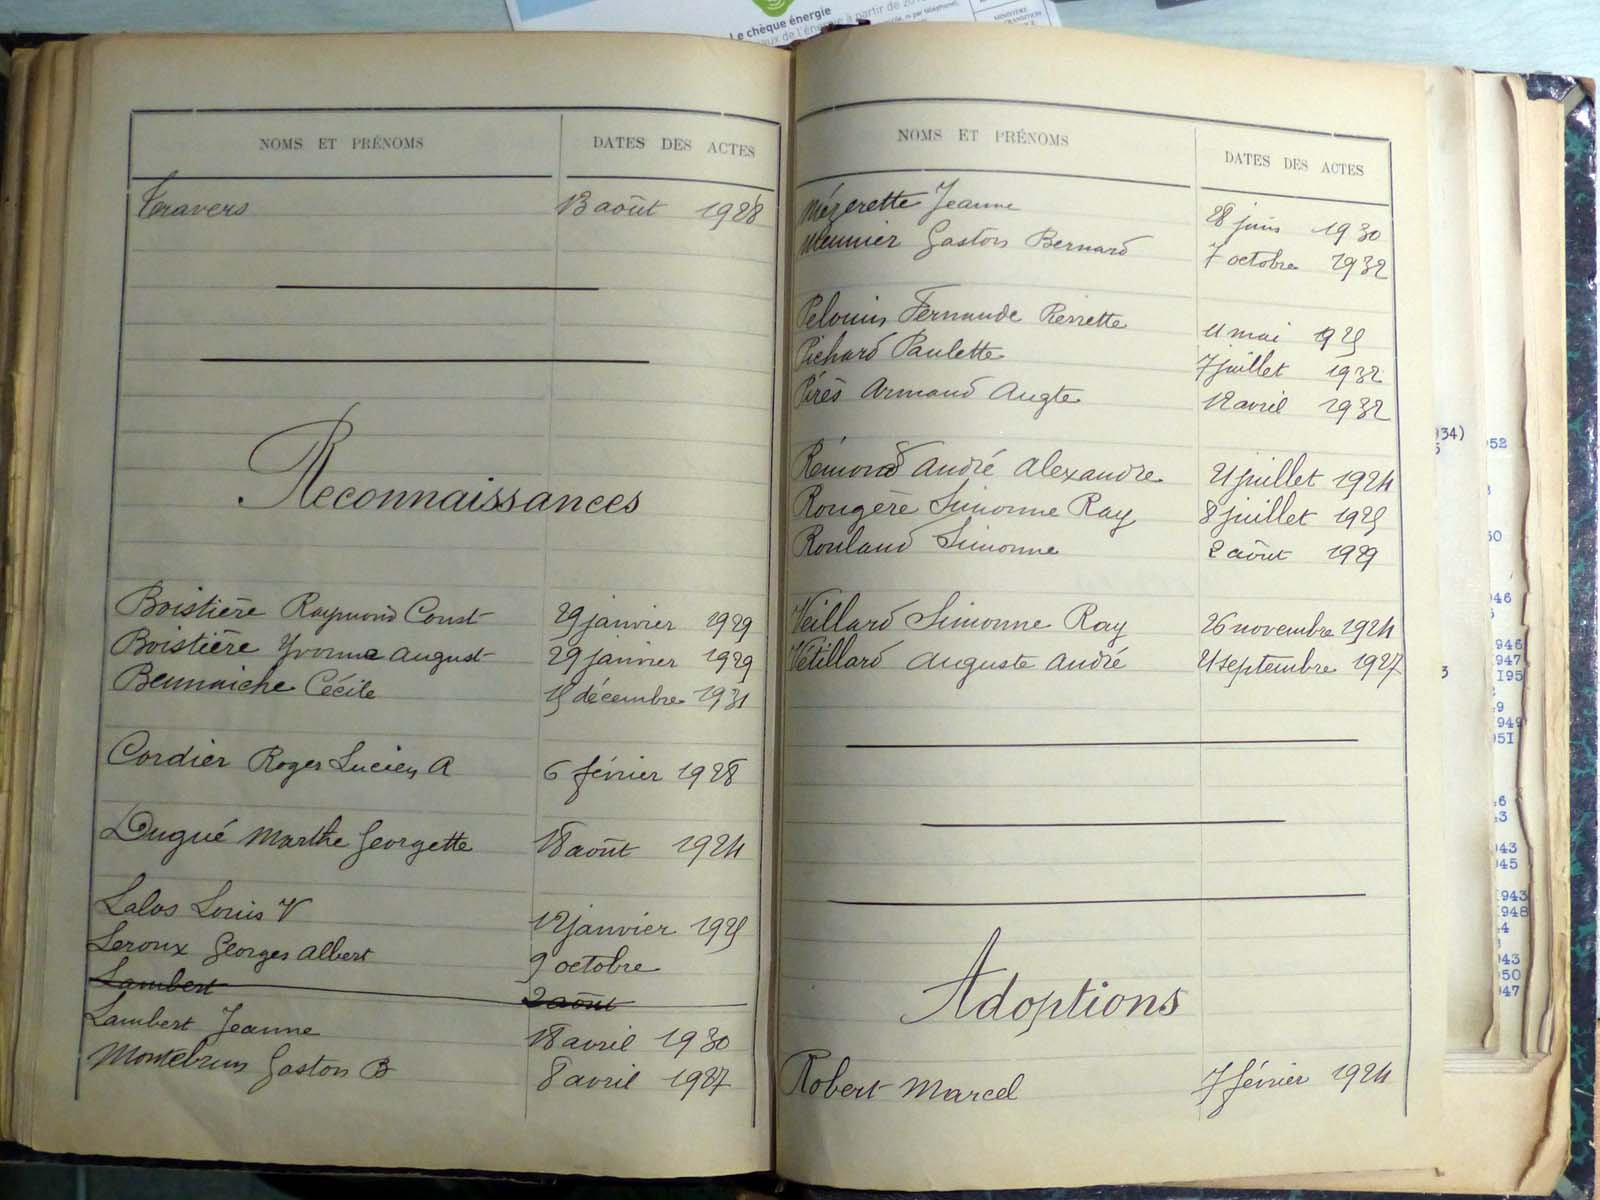 Le chèque énergie
à partir de
NOMS ET PRÉNOMS DATES DES ACTES
Travers 13 août 1928
Reconnaissances
Boistière Raymond Const 29 janvier 1929
Boistière Yvonne August 29 janvier 1929
Beunaiche Cécile 15 décembre 1931
Cordier Roger Lucien A 6 février 1928
Dugué Marthe Georgette 18 août 1924
Lalos Louis V 12 janvier 1925
Leroux Georges Albert 9 octobre
Lambert 2 août
Lambert Jeanne 18 avril 1930
Montebrun Gaston B 8 avril 1927
NOMS ET PRÉNOMS DATES DES ACTES
Mézerette Jeanne 28 juin 1930
Meunier Gaston Bernard 7 octobre 1932
Pelouin Fernande Pierrette 11 mai 1925
Pichard Paulette 7 juillet 1932
Pirès Armand Augte 12 avril 1932
Rémond André Alexandre 21 juillet 1924
Rougère Simonne Ray 8 juillet 1925
Rouland Simonne 2 août 1929
Veillard Simonne Ray 26 novembre 1924
Vétillard Auguste André 21 septembre 1927
Adoptions
Robert Marcel 7 février 1924